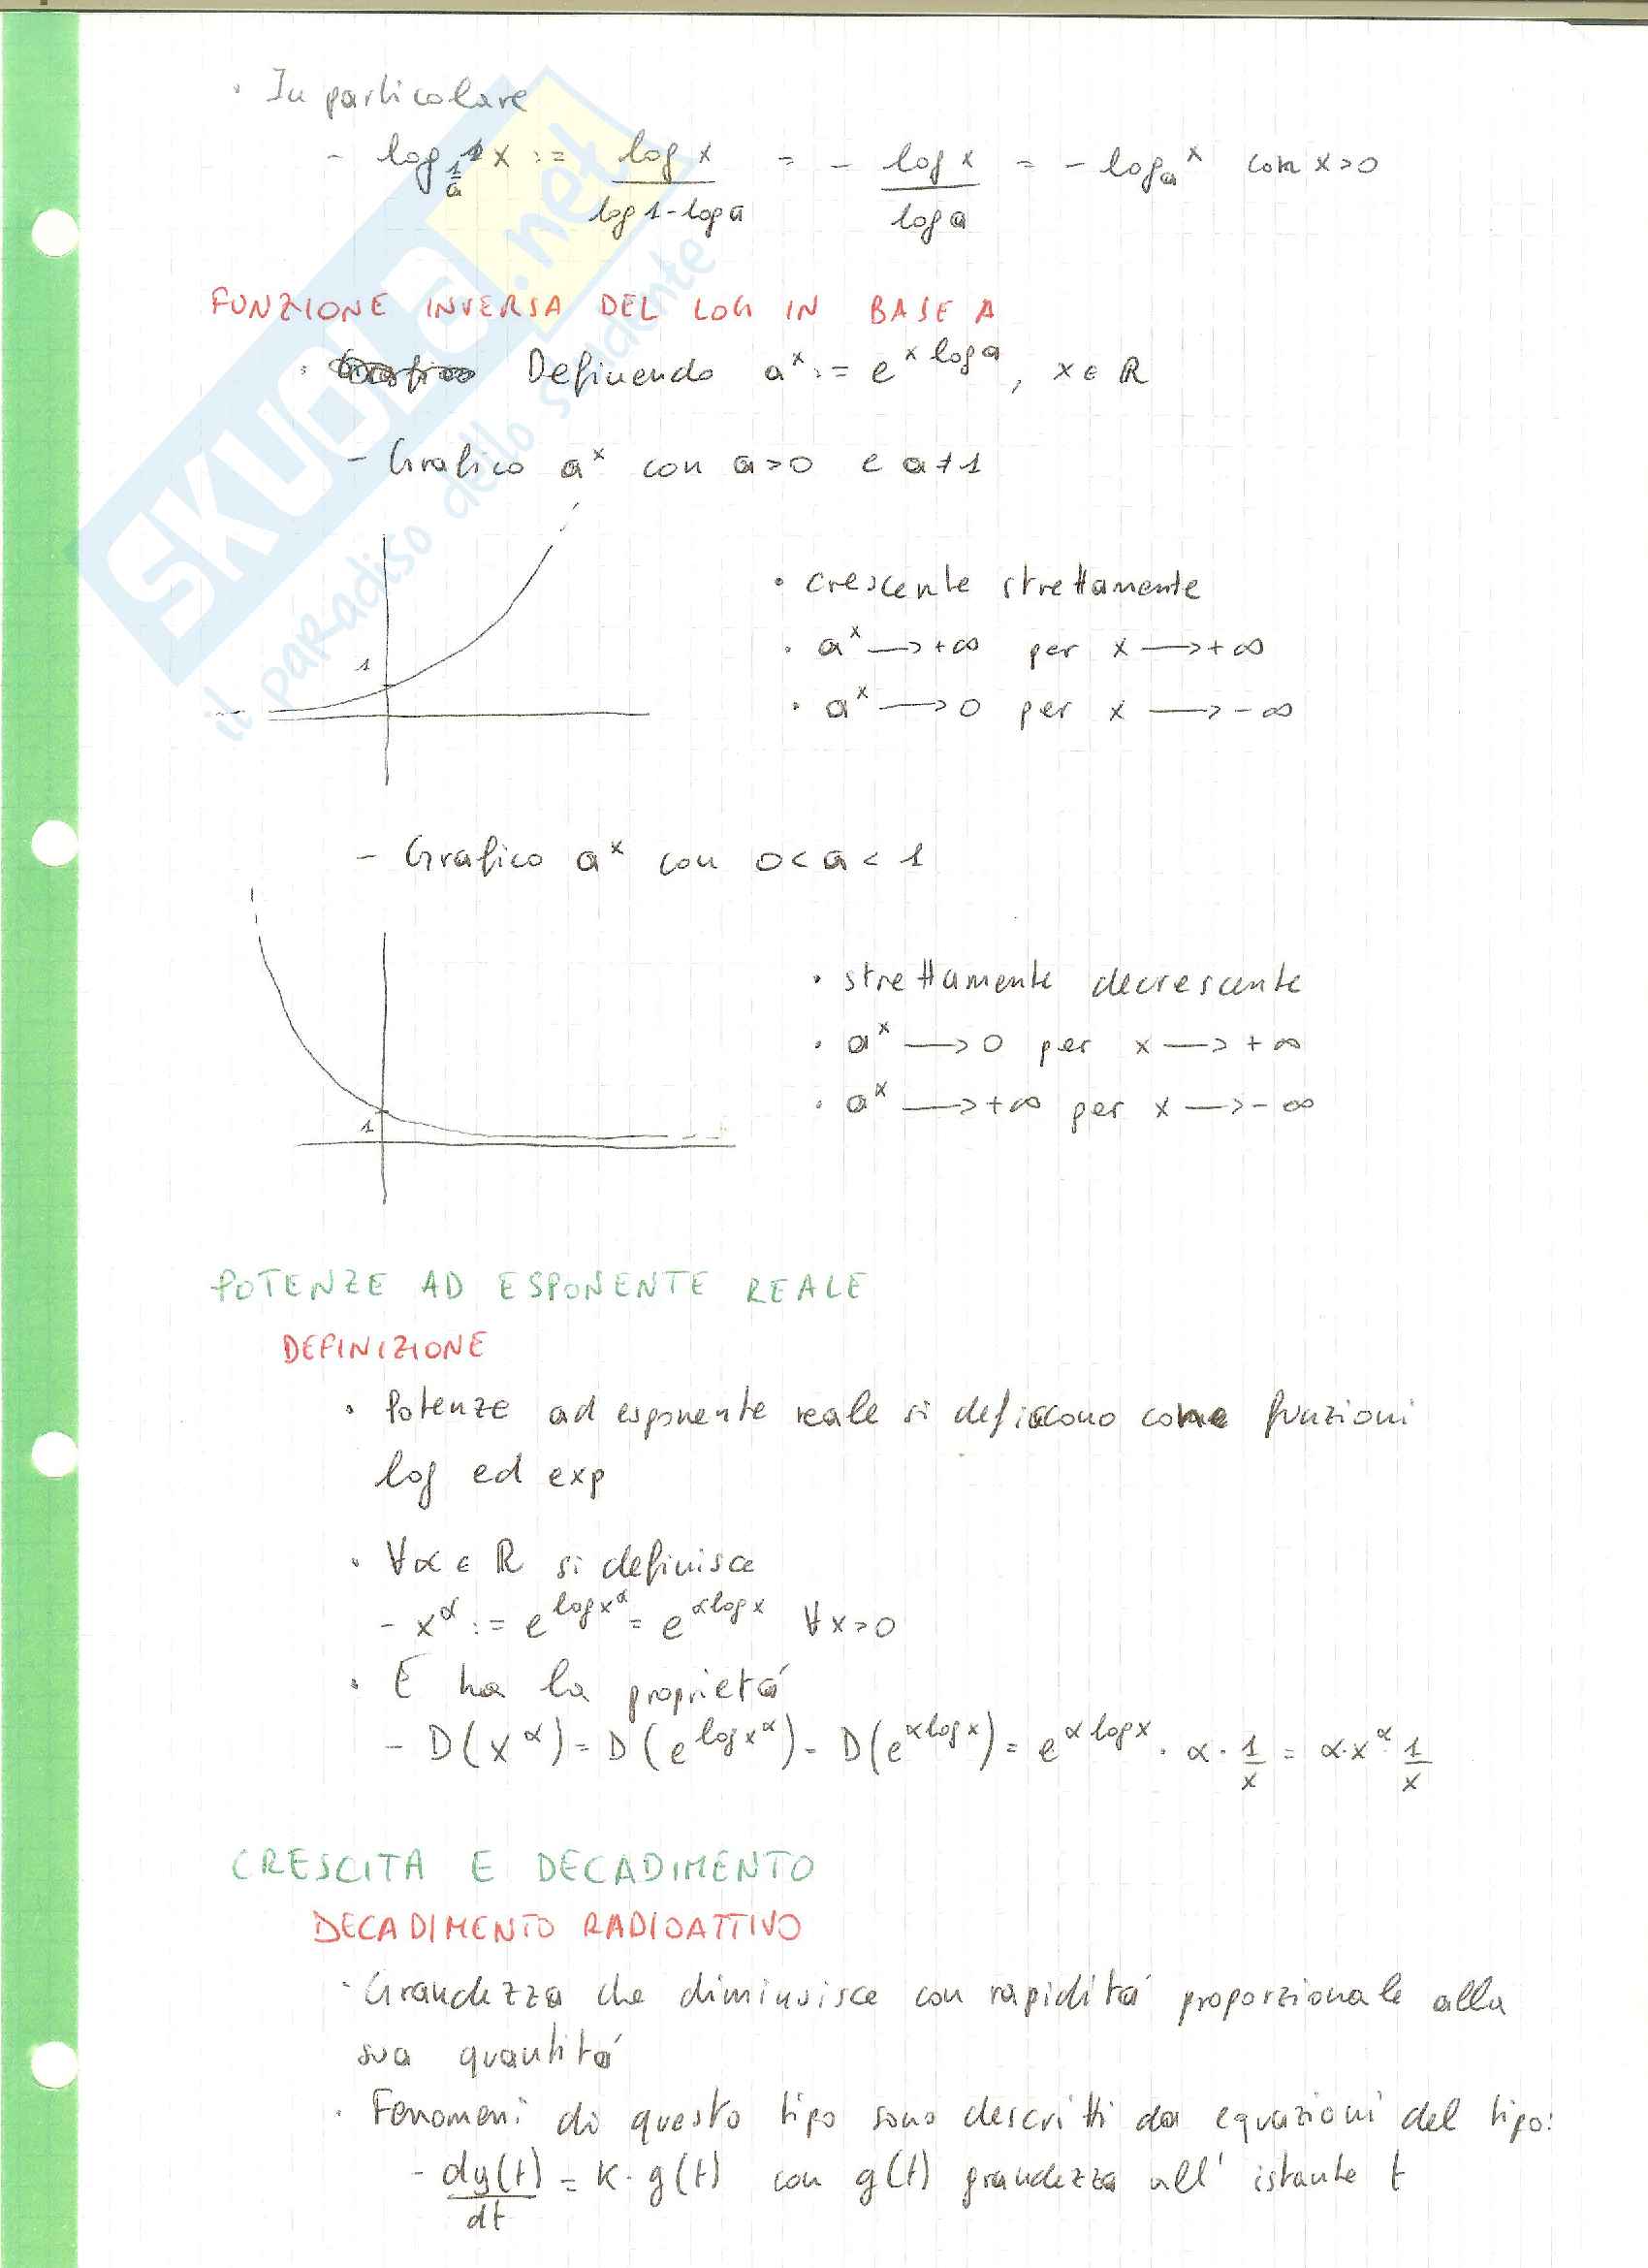 · In particolare
- log_{1/a} x := log x / (log 1 - log a) = - log x / log a = - log_a x con x>0
FUNZIONE INVERSA DEL LOG IN BASE A
· Definendo a^x := e^{x log a}, x ∈ ℝ
- Grafico a^x con a>0 e a≠1
1
• crescente strettamente
• a^x → +∞ per x → +∞
• a^x → 0 per x → -∞
- Grafico a^x con 0<a<1
1
• strettamente decrescente
• a^x → 0 per x → +∞
• a^x → +∞ per x → -∞
POTENZE AD ESPONENTE REALE
DEFINIZIONE
• Potenze ad esponente reale si defiscono come funzioni
log ed exp
• ∀α ∈ ℝ si definisce
- x^α := e^{log x^α} = e^{α log x} ∀x>0
• E ha la proprietá
- D(x^α) = D(e^{log x^α}) = D(e^{α log x}) = e^{α log x} · α · 1/x = α·x^α · 1/x
CRESCITA E DECADIMENTO
DECADIMENTO RADIOATTIVO
· Grandezza che diminuisce con rapiditá proporzionale alla
sua quantitá
· Fenomeni di questo tipo sono descritti da equazioni del tipo:
- dy(t)/dt = K · y(t) con y(t) grandezza all' istante t
SKUOLA.net
il paradiso dello studente